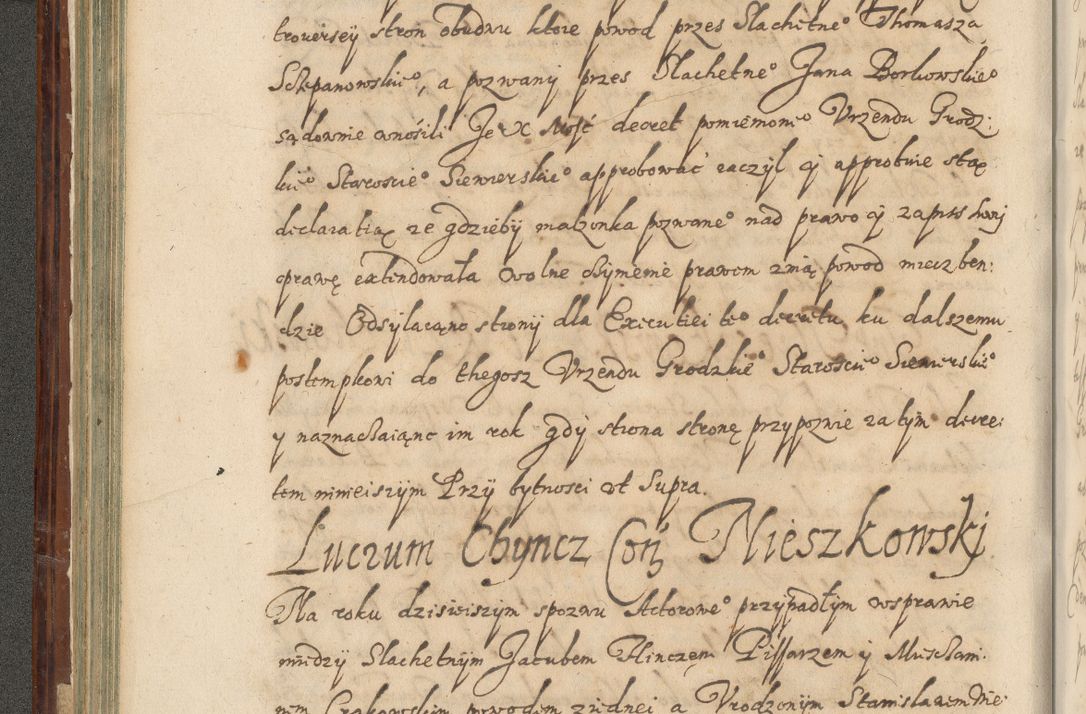 troversey stron obudwu ktore powod przes Slachetne° Thomasza
Sczepanowskie°, a pozwany przes Slachetne° Jana Borkowskie°
sądownie wnosili Je X Mość decret pomienione° Vrzendu Grodz:
kie° Staroscie° Siewierskie° approbować raczył y approbuie s tą
declaratią ze gdzieby malzonka pozwane° nad prawo y zapis swoy
oprawę extendowała wolne czynienie prawem z nią powod miecz ben:
dzie Odsylaiąnc strony dla Executiei te° decretu ku dalszemu
postempkowi do thegosz Vrzendu Grodzkie° Staroscie° Siewierskie°
y naznaczaiąnc im rok gdy strona stronę przypoznie za tym decre:
tem ninieiszym Przy bytnosci vt Supra.
Lucrum Chyncz Con Mieszkowskj
Na roku dzisieiszym spozwu Actorowe° przypadłym wsprawie
między Slachetnym Jacubem Hinczem Pissarzem y Mieszczani:
nem Crakowskim powodem ziednei a Vrodzonym Stanislawem Mie: